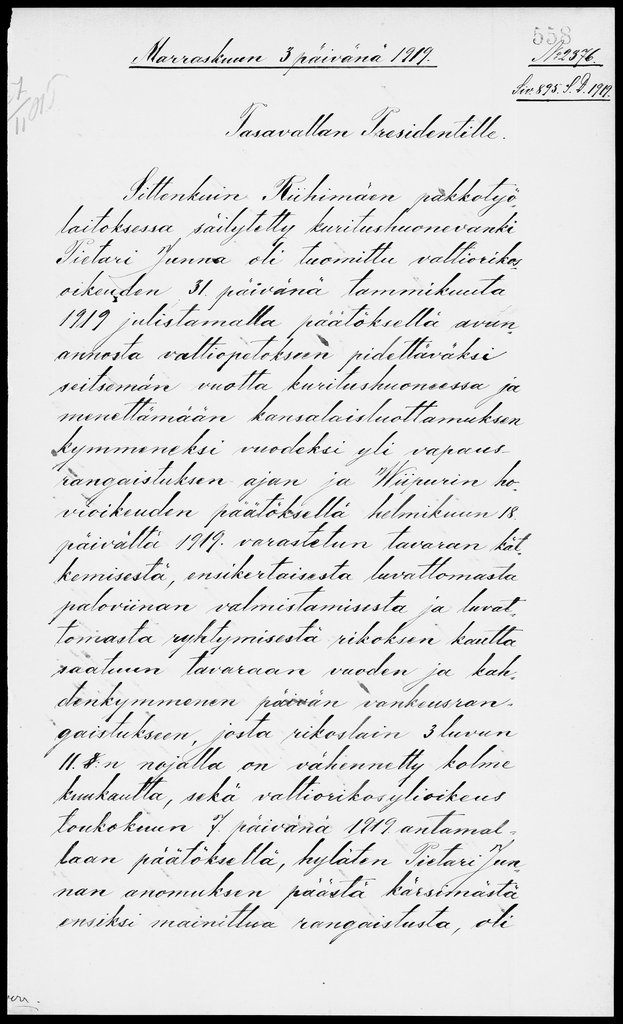 558
Marraskuun 3 päivänä 1919.
№ 2376.
Siv. 895. S. D. 1919.
Tasavallan Presidentille.
Sittenkuin Riihimäen pakkotyö-
laitoksessa säilytetty kuritushuonevanki
Pietari Junna oli tuomittu valtiorikos
oikeuden 31. päivänä tammikuuta
1919 julistamalla päätöksellä avun-
annosta valtiopetokseen pidettäväksi
seitsemän vuotta kuritushuoneessa ja
menettämään kansalaisluottamuksen
kymmeneksi vuodeksi yli vapaus-
rangaistuksen ajan ja Wiipurin ho-
vioikeuden päätöksellä helmikuun 18.
päivältä 1919. varastetun tavaran kät-
kemisestä, ensikertaisesta luvattomasta
paloviinan valmistamisesta ja luvat-
tomasta ryhtymisestä rikoksen kautta
saatuun tavaraan vuoden ja kah-
denkymmenen päivän vankeusran-
gaistukseen, josta rikoslain 3 luvun
11. §:n nojalla on vähennetty kolme
kuukautta, sekä valtiorikosylioikeus
toukokuun 7. päivänä 1919 antamal-
laan päätöksellä, hyläten Pietari Jun-
nan anomuksen päästä kärsimästä
ensiksi mainittua rangaistusta, oli